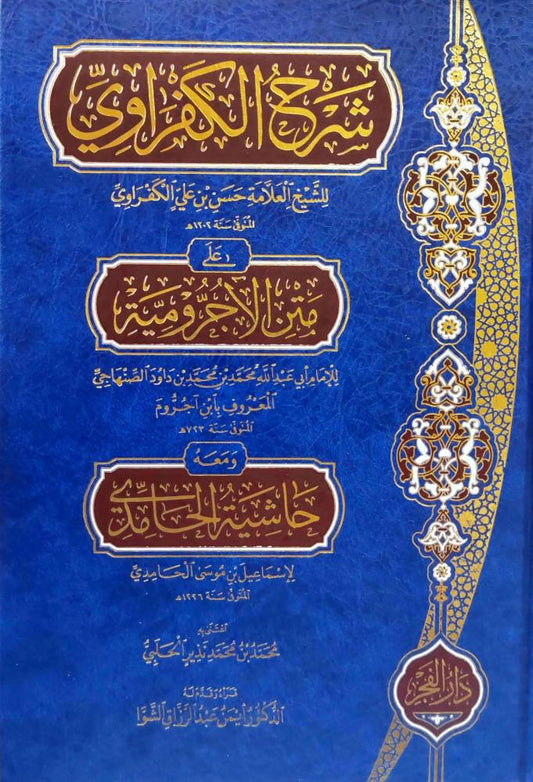 شَرْحُ الكَفْرَاوِيِّ
لِلشَّيْخِ العَلَّامَةِ حَسَنِ بْنِ عَلِيٍّ الكَفْرَاوِيِّ
المُتَوَفَّى سَنَة ١٢٠٢هـ
عَلَى
مَتْنِ الآجُرُّومِيَّةِ
لِلْإِمَامِ أَبِي عَبْدِ اللّٰهِ مُحَمَّدِ بْنِ مُحَمَّدِ بْنِ دَاوُدَ الصِّنْهَاجِيِّ
المَعْرُوفِ بِابْنِ آجُرُّومَ
المُتَوَفَّى سَنَة ٧٢٣هـ
وَمَعَهُ
حَاشِيَةُ الحَامِدِيِّ
لِإِسْمَاعِيلَ بْنِ مُوسَى الحَامِدِيِّ
المُتَوَفَّى سَنَة ١٢٢٦هـ
اعْتَنَى بِهِ
مُحَمَّدُ بْنُ مُحَمَّد نَذِير الحَلَبِيُّ
قَرَأَهُ وَقَدَّمَ لَهُ
الدُّكْتُور أَيْمَنُ عَبْدُ الرَّزَّاقِ الشَّوَّا
دَارُ الفَجْرِ